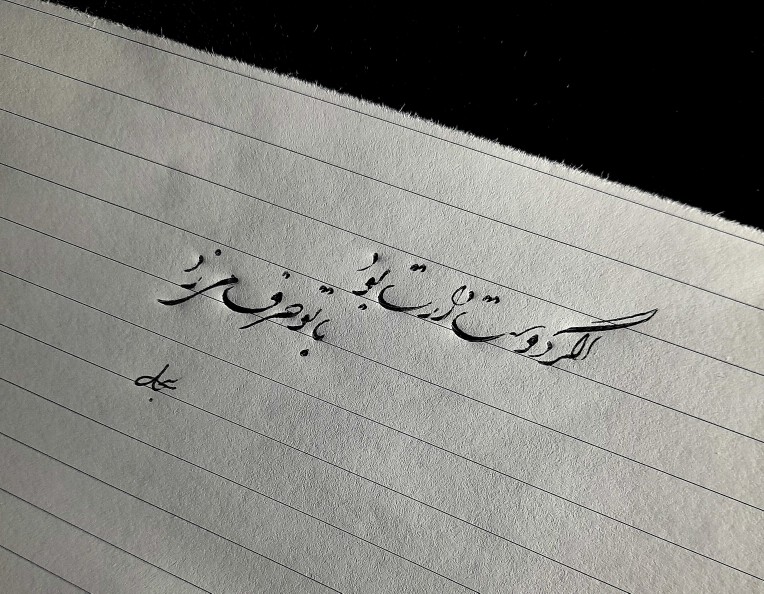 اگر دوست دارت بود
با تو حرف میزد